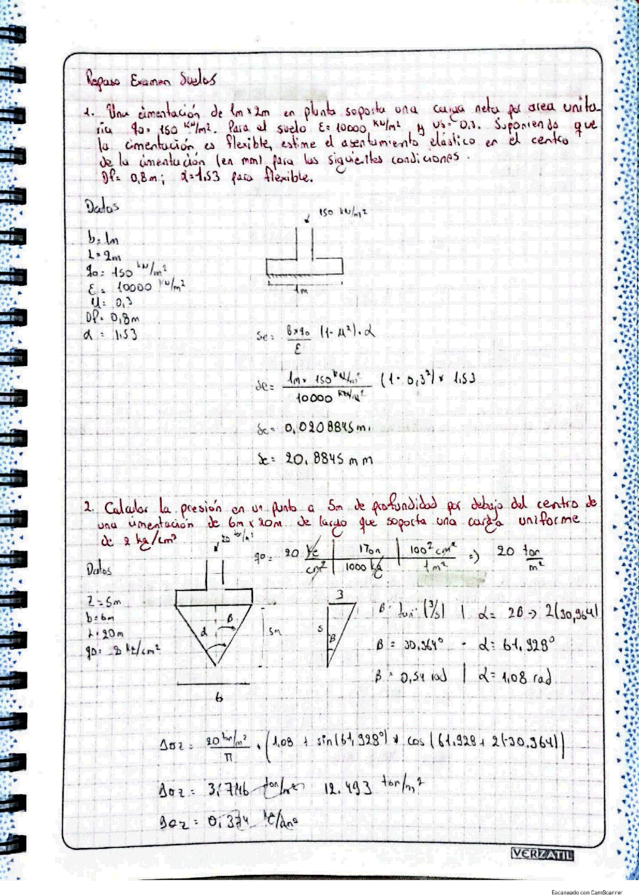 Repaso Examen Suelos
1. Una cimentación de 1m x 2m en planta soporta una carga neta por area unita
ria q0= 150 kN/m2. Para el suelo E= 10000 kN/m2 y us= 0.3. Suponiendo que
la cimentación es flexible, estime el asentamiento elástico en el centro
de la cimentación (en mm) para las siguientes condiciones.
Df= 0,8m; α=1.53 para flexible.
Datos
150 kN/m²
b= 1m
L= 2m
q0= 150 kN/m²
E= 10000 kN/m²
u= 0,3
Df= 0,8m
α = 1.53
1m
Se= b×q0/E (1-u²).α
Se= 1m × 150 kN/m²/10000 kN/m² (1 - 0,3²) × 1.53
Se= 0,0208845 m
Se= 20.8845 mm
2. Calcular la presión en un punto a 5m de profundidad por debajo del centro de
una cimentación de 6m x 20m de largo que soporta una carga uniforme
de 2 kg/cm²
20 ton/m²
q0= 20 kg/cm² | 1Ton/1000 kg | 100² cm²/1m² => 20 ton/m²
Datos
z = 5m
b= 6m
L= 20m
q0= 2 kg/cm²
α β
5m
6
3
5
β
β= tan⁻¹(3/5) | α= 2β → 2(30,964)
β = 30,964° - α= 61,928°
β = 0,54 rad | α= 1,08 rad
Δσz = 20 ton/m²/π . (1.08 + sin(61,928°) * cos(61.928 + 2(-30.964))
Δσz = 3,746 ton/m² 12.493 ton/m²
Δσz = 0,374
VERZATIL
Escaneado con CamScanner